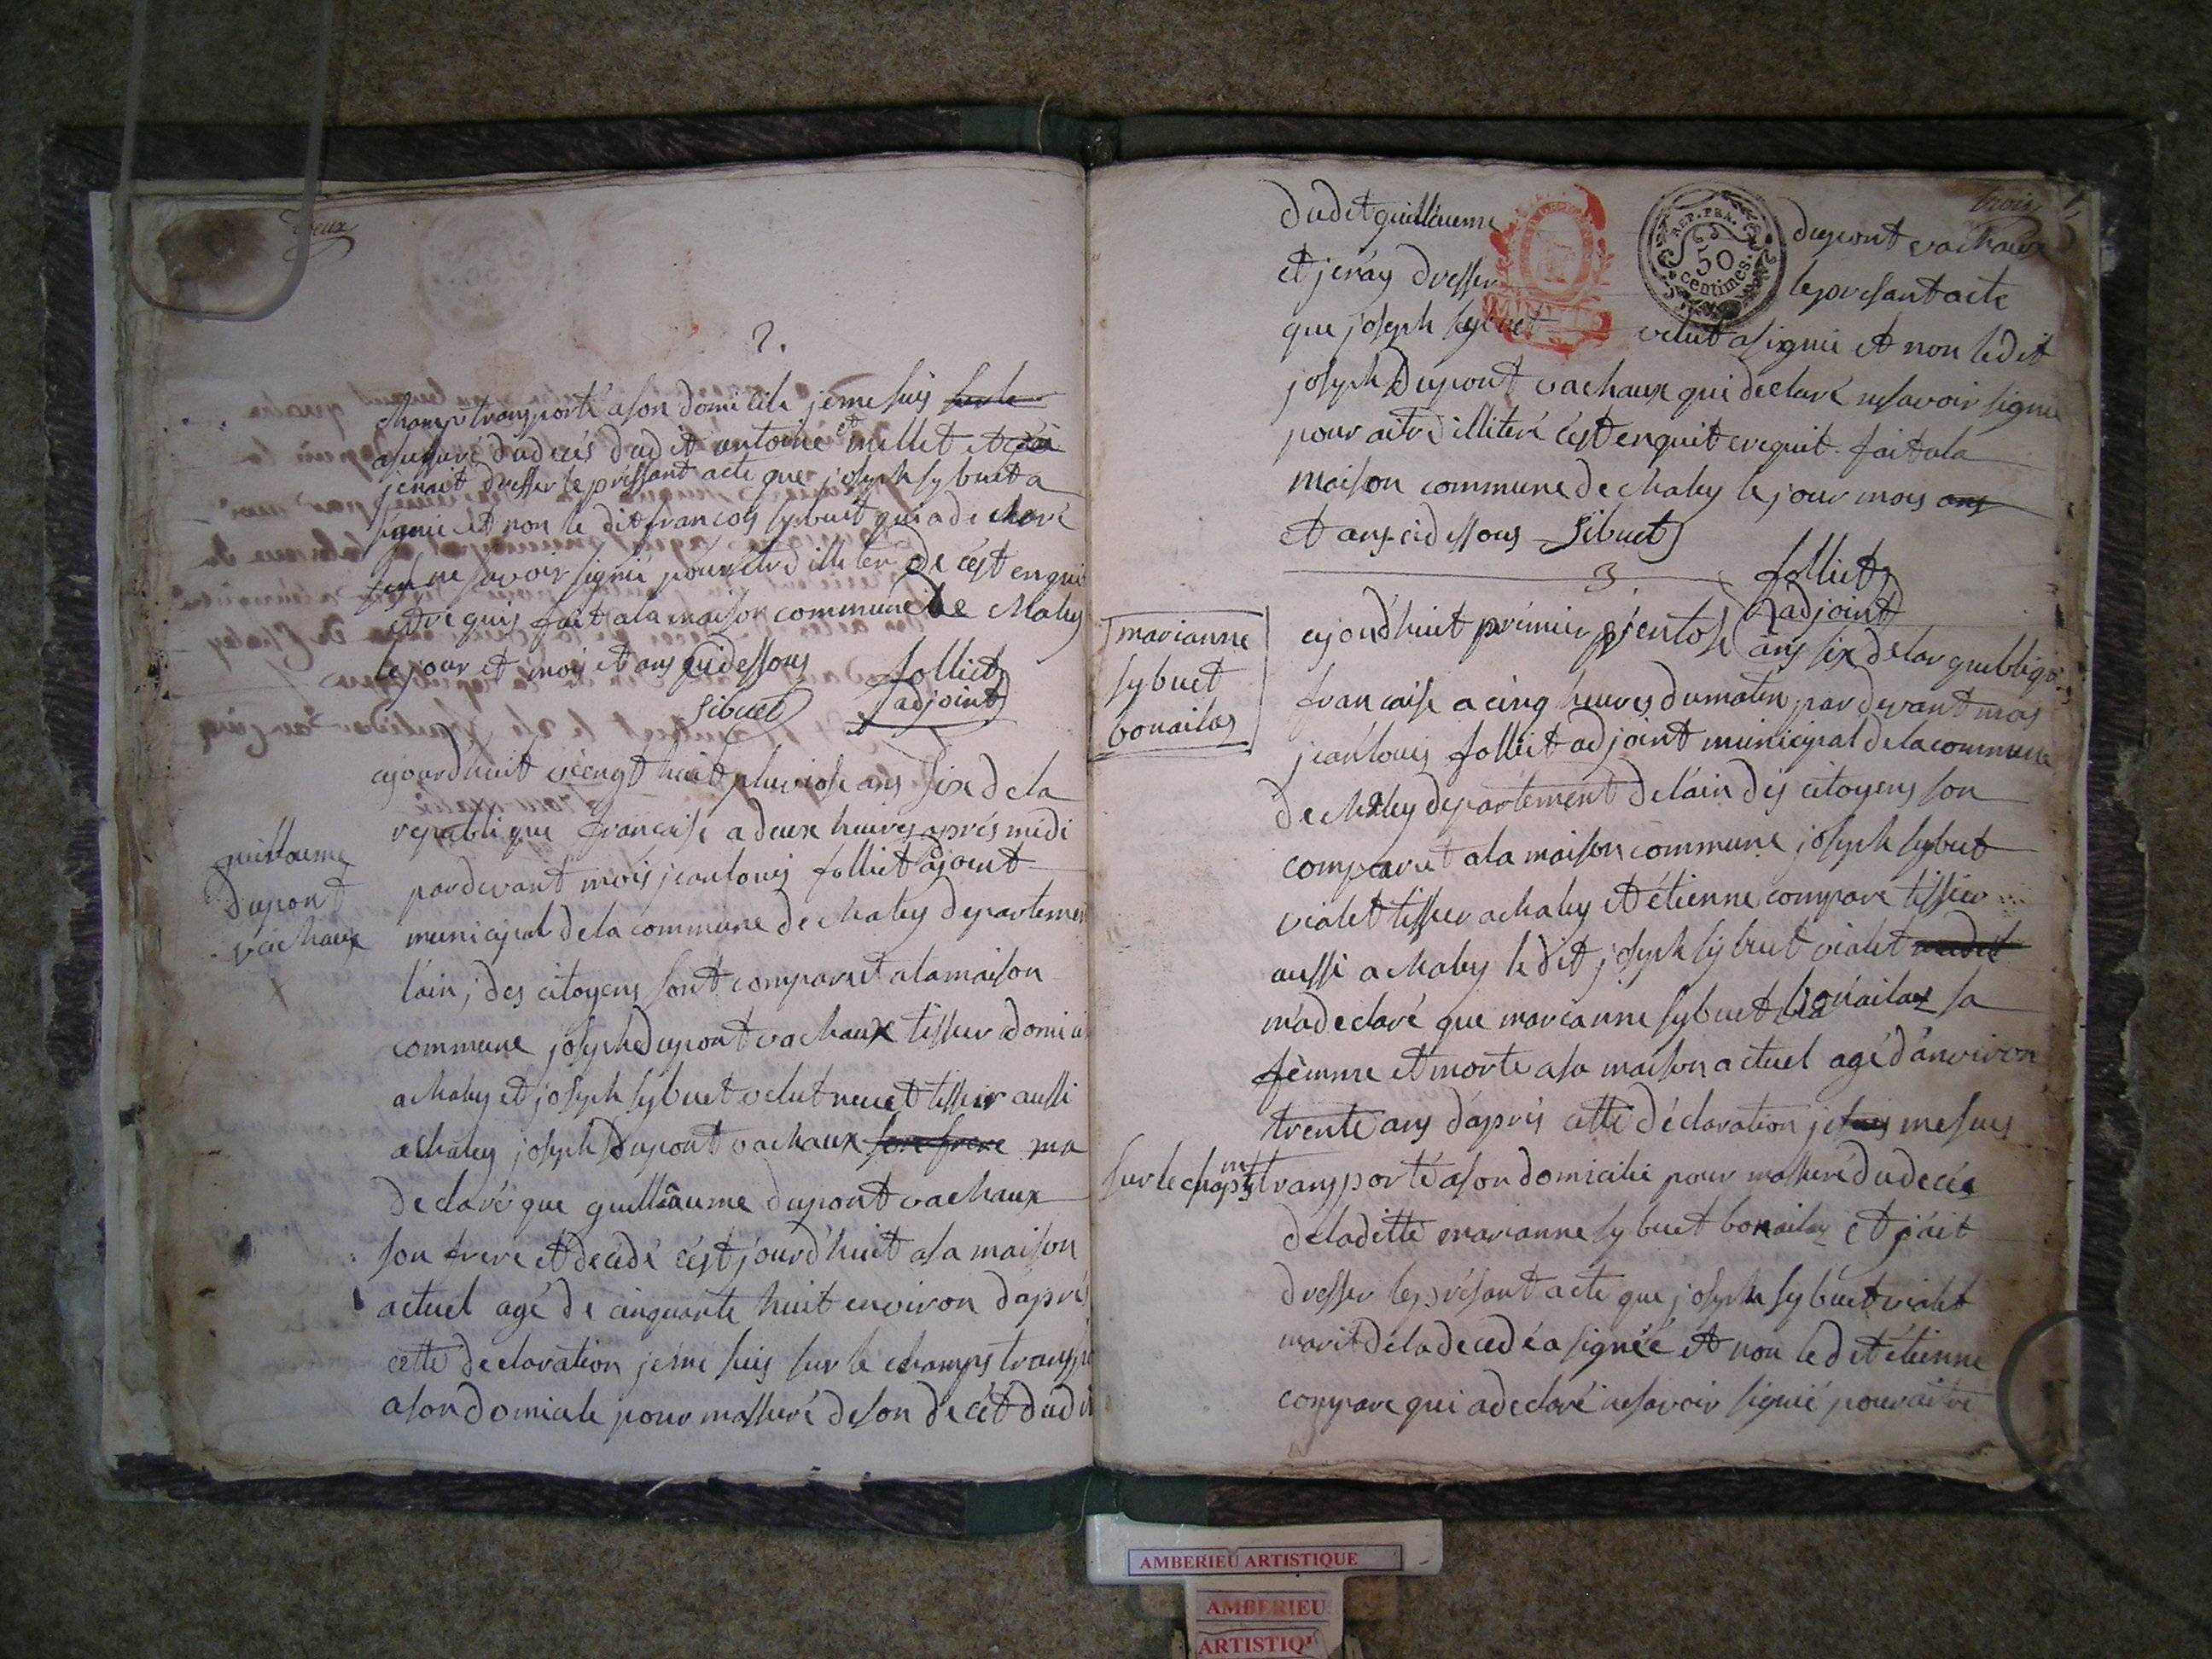 deux
2.
champ transporté a son domicile je me suis sur le
assuré du decés dud it antoine millet et
je nait dresser le pressant acte que joseph sybuet a
signié et non le dit francois sybuet qui a declaré
ne savoir signié pour etre illiteré de cést enqui
et requis fait a la maison commune de Chaley
le jour et mois et ans qui dessous
Sibuet
folliet
adjoint
guillaume
dupont
vachaux
ajourdhuit viengt huit pluviose ans six de la
republique francaise a deux heures aprés midi
pardevant mois jean louis folliet adjoint
municipal de la commune de chaley departemen
láin, des citoyens sont comparuet a la maison
commune joseph dupont vachaux tissier domici
a chaley et joseph sybuet velut tissier aussi
a chaley joseph dupont vachaux son frere ma
declaré que guilláaume dupont vachaux
son frere et decedé cést jourdhuit a sa maison
actuel agé de cinquante huit environ dáprés
cette declaration je me suis sur le champs transpo
a son domicile pour massuré de son decét dud i
trois
dudit guilláume dupont vachaux
et jenáy dresser le presant acte
que joseph sybuet velut a signié et non ledit
joseph dupont vachaux qui declaré ne savoir signié
pour aitre illiteré cést enquit erequit fait a la
maison commune de chaley le jour mois ans
et ans cidessous Sibuet
folliet
adjoint
3
marianne
sybuet
bonailas
ajourdhuit prémier vientose ans six de la repubblique
francaise a cinq heures du matin par devant mois
jean louis folliet adjoint municipal de la commune
de chaley departement de láin des citoyens son
comparuet a la maison commune joseph sybuet
violet tissier a chaley et étienne compare tissier
aussi a chaley le dit joseph sybuet violet
ma declaré que marianne sybuet bonailas sa
fémme et morte a sa maison actuel agé dánviron
trente ans dáprés cette déclaration je suis me suis
sur le champt transporté a son domicilie pour massuré du decés
de laditte marianne sybuet bonailas et jáit
dresser le présant acte que joseph sybuet violet
marit de la decedé a signéé et non le dit étienne
compare qui a declaré ne savoir signié pour aitre
REP. FRA.
50
centimes.
AMBERIEU ARTISTIQUE
AMBERIEU
ARTISTIQU